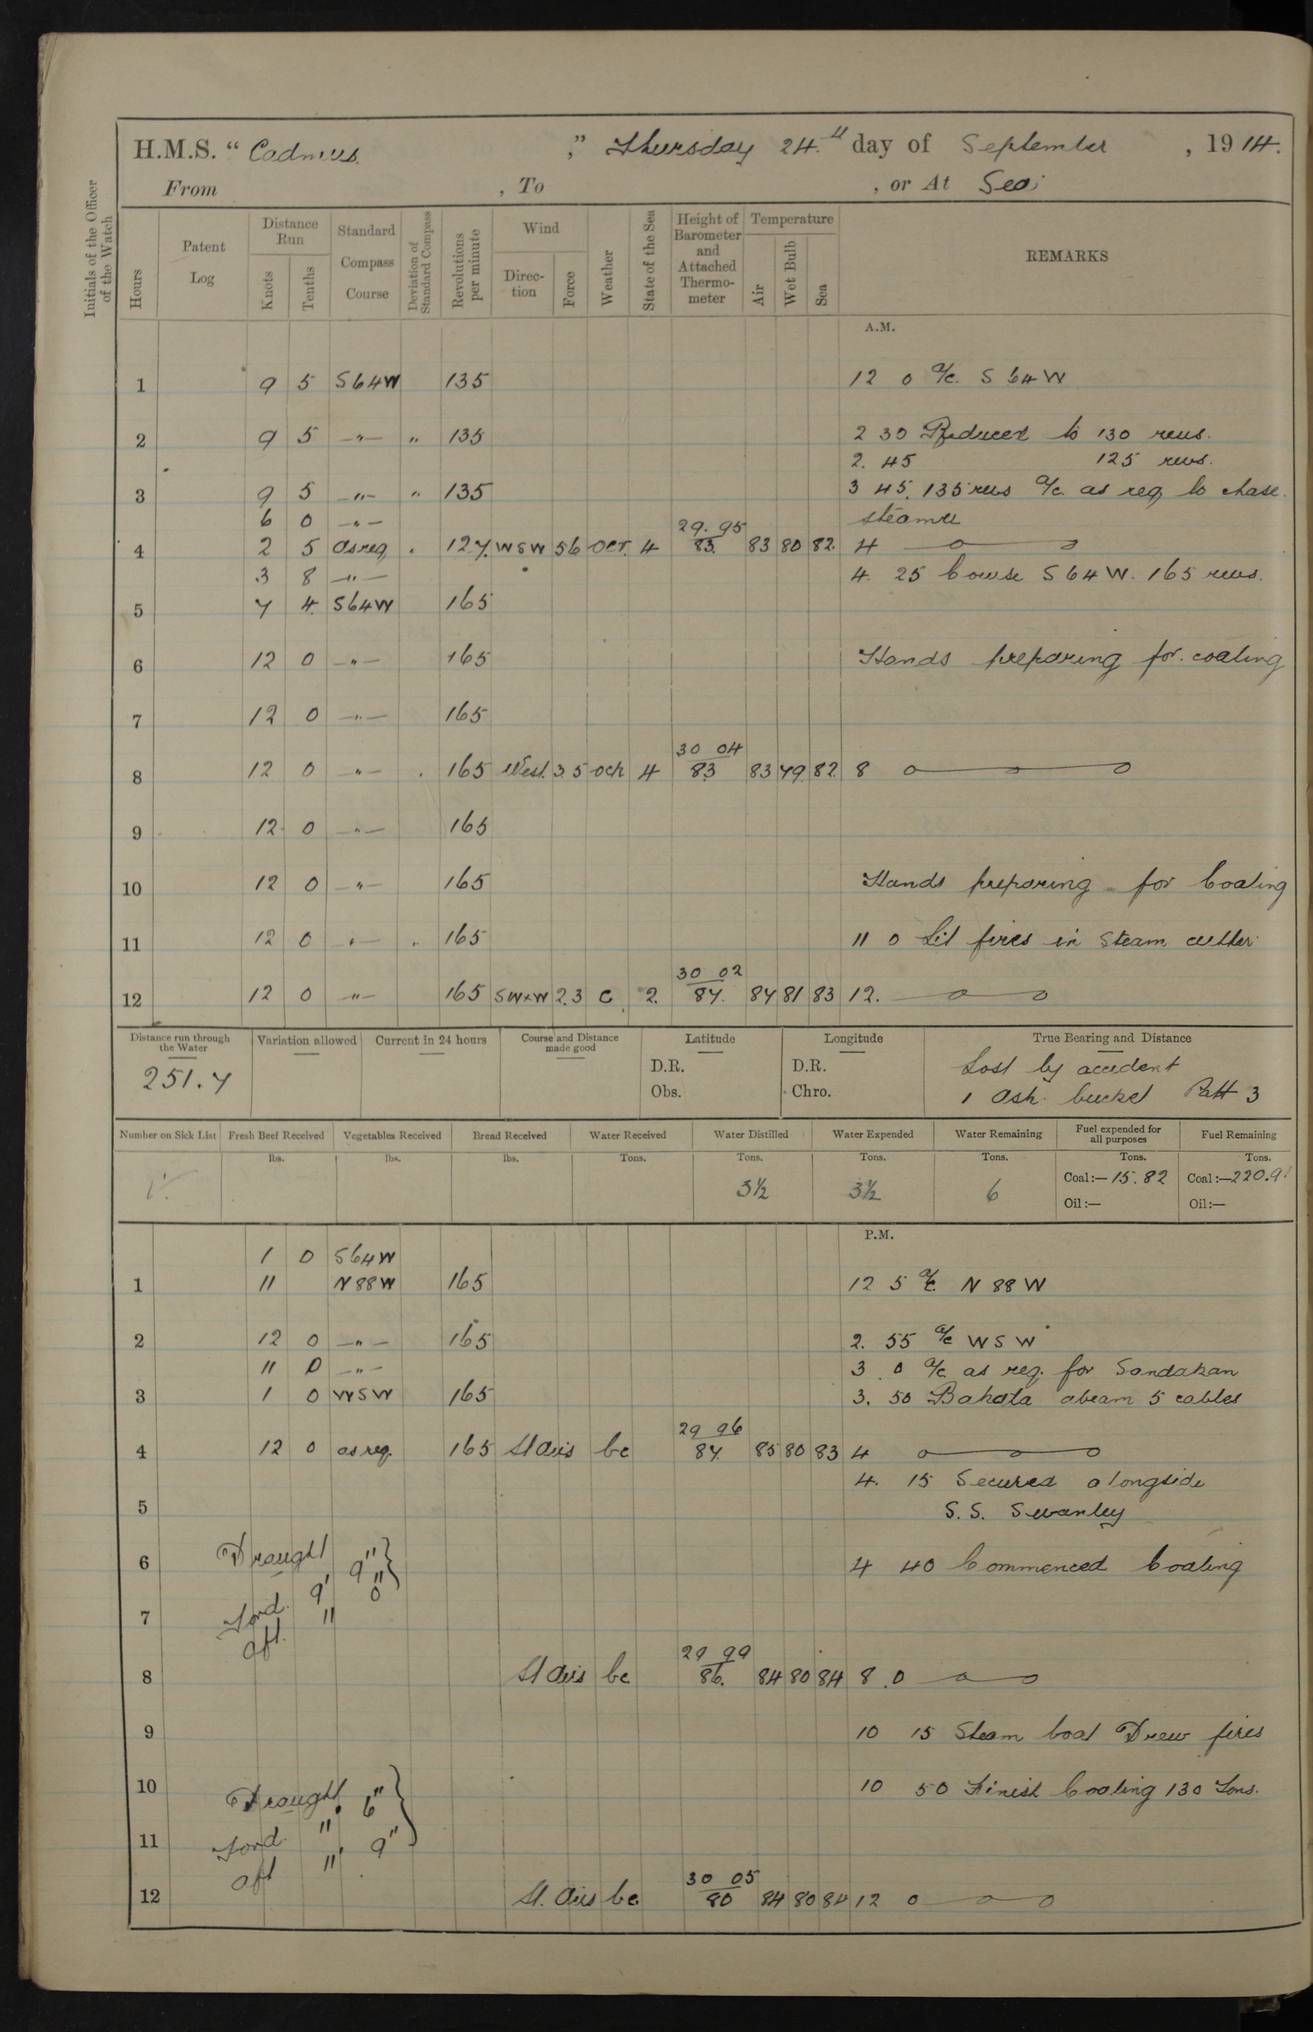 H.M.S. “ Cadmus ,” Thursday 24th day of September , 1914.
From , To , or At Sea
Initials of the Officer of the Watch
Hours
Patent Log
Distance Run
Knots
Tenths
Standard Compass Course
Deviation of Standard Compass
Revolutions per minute
Wind
Direc-tion
Force
Weather
State of the Sea
Height of Barometer and Attached Thermo-meter
Temperature
Air
Wet Bulb
Sea
REMARKS
A.M.
1 9 5 S64W 135 12 0 a/c. S 64 W
2 9 5 —"— " 135 2 30 Reduced to 130 revs.
2. 45 125 revs.
3 9 5 —"— " 135 3 45. 135 revs a/c as req. to chase
6 0 —"— steamer
29. 95
4 2 5 as req . 127. WSW 56 ocr. 4 83. 83 80 82. 4
3 8 —"— 4. 25 Course S 64 W. 165 revs.
5 7 4 S64W 165
6 12 0 —"— 165 Hands preparing for coaling
7 12 0 —"— 165
30 04
8 12 0 —"— . 165 West. 3.5 och 4 83 83 79 82 8
9 12 0 —"— 165
10 12 0 —"— 165 Hands preparing for Coaling
11 12 0 —"— 165 11 0 Lit fires in Steam cutter
30 02
12 12 0 —"— 165 SWxW 2.3 c 2. 87. 87 81 83 12.
Distance run through the Water
Variation allowed
Current in 24 hours
Course and Distance made good
Latitude
Longitude
True Bearing and Distance
251.7
D.R. D.R. Lost by accident
Obs. Chro. 1 Ash bucket Patt 3
Number on Sick List Fresh Beef Received Vegetables Received Bread Received Water Received Water Distilled Water Expended Water Remaining Fuel expended for all purposes Fuel Remaining
lbs. lbs. lbs. Tons. Tons. Tons. Tons. Tons. Tons.
3½ 3½ 6 Coal :— 15.82 Coal :— 220.9
Oil :— Oil :—
P.M.
1 0 S64W
1 11 N88W 165 12 5 a/c N 88 W
2 12 0 —"— 165 2. 55 a/c W S W
11 0 —"— 3 . 0 a/c as req. for Sandakan
3 1 0 WSW 165 3. 50 Bahala abeam 5 cables
29 96
4 12 0 as req. 165 Lt airs bc 87. 85 80 83 4
4. 15 Secured alongside
5 S.S. Swanley
6 4 40 Commenced Coaling
Draught
Ford. 9' 9"
aft. 11 0"
7
29 99
8 Lt airs bc 86. 84 80 84 8 . 0
9 10 15 Steam boat Drew fires
10 10 50 Finish Coaling 130 Tons.
Draught
Ford. 11' 6"
aft 11' 9"
11
30 05
12 Lt. airs bc 80 84 80 84 12 0